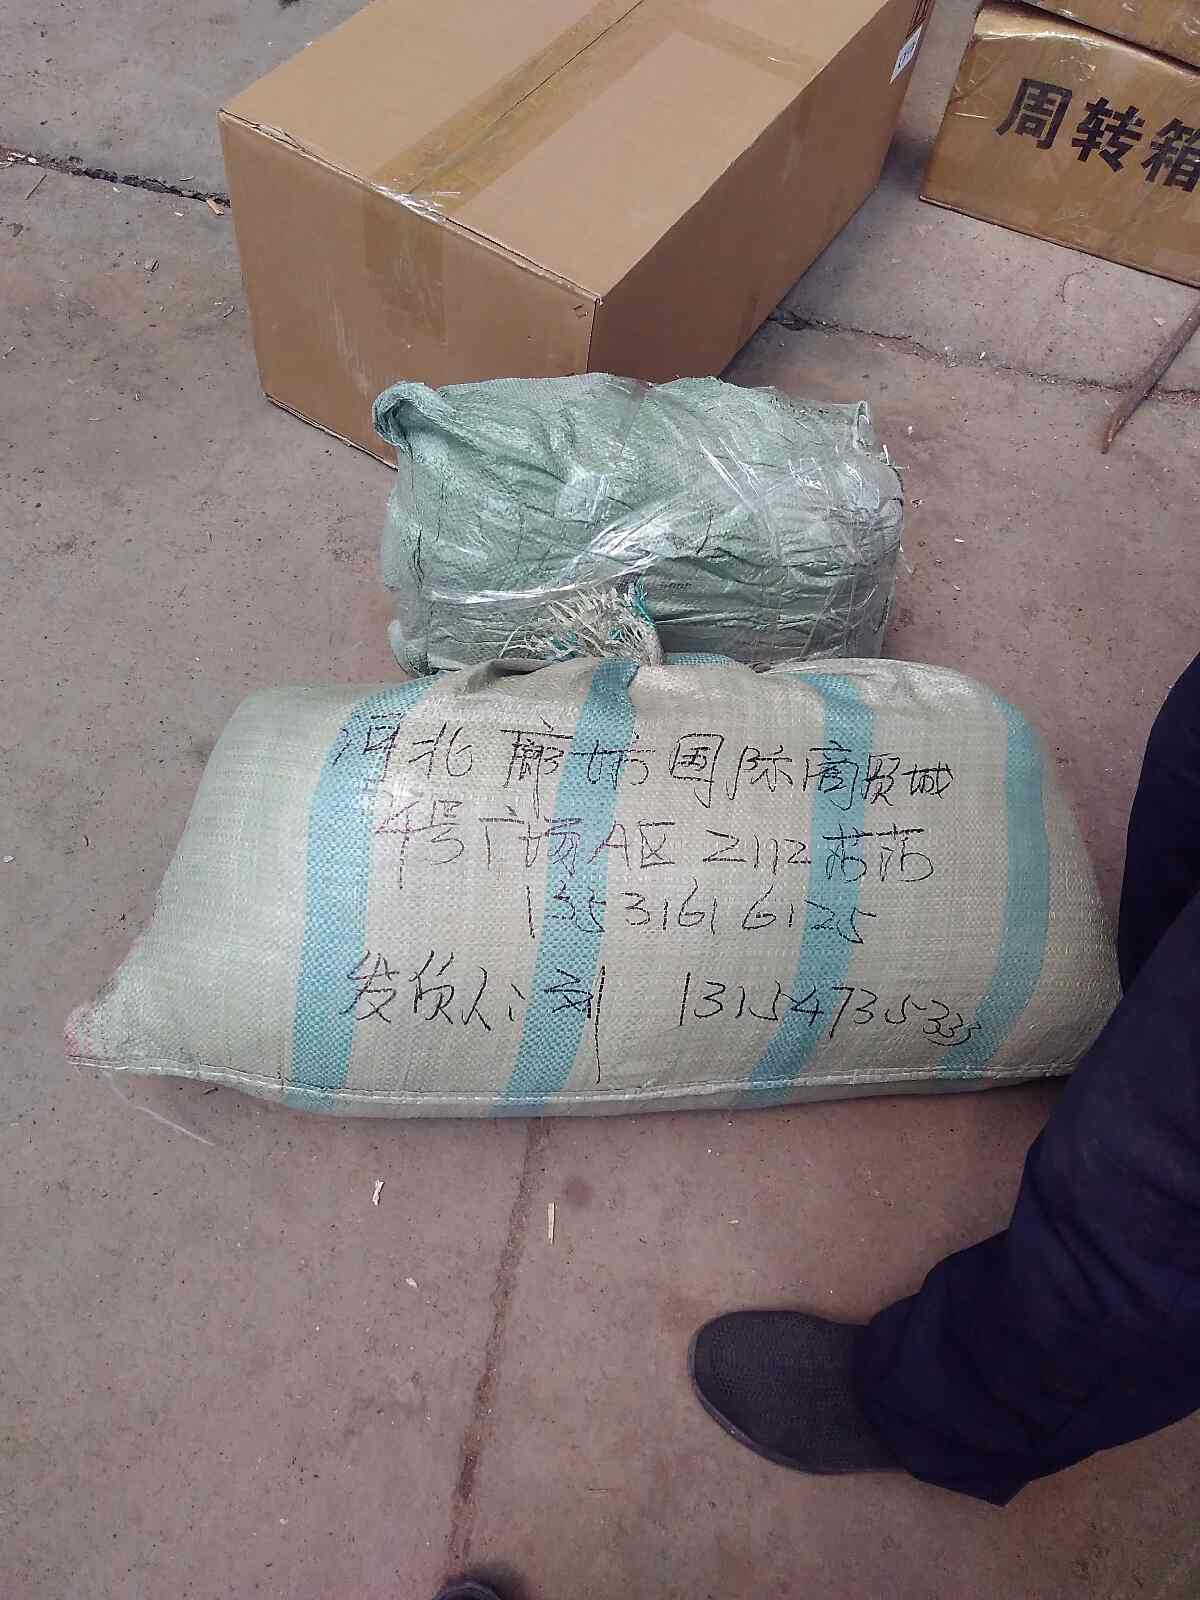 周转箱
河北廊坊国际商贸城
号广场A区2112
13531616125
发货人:刘 13154735333